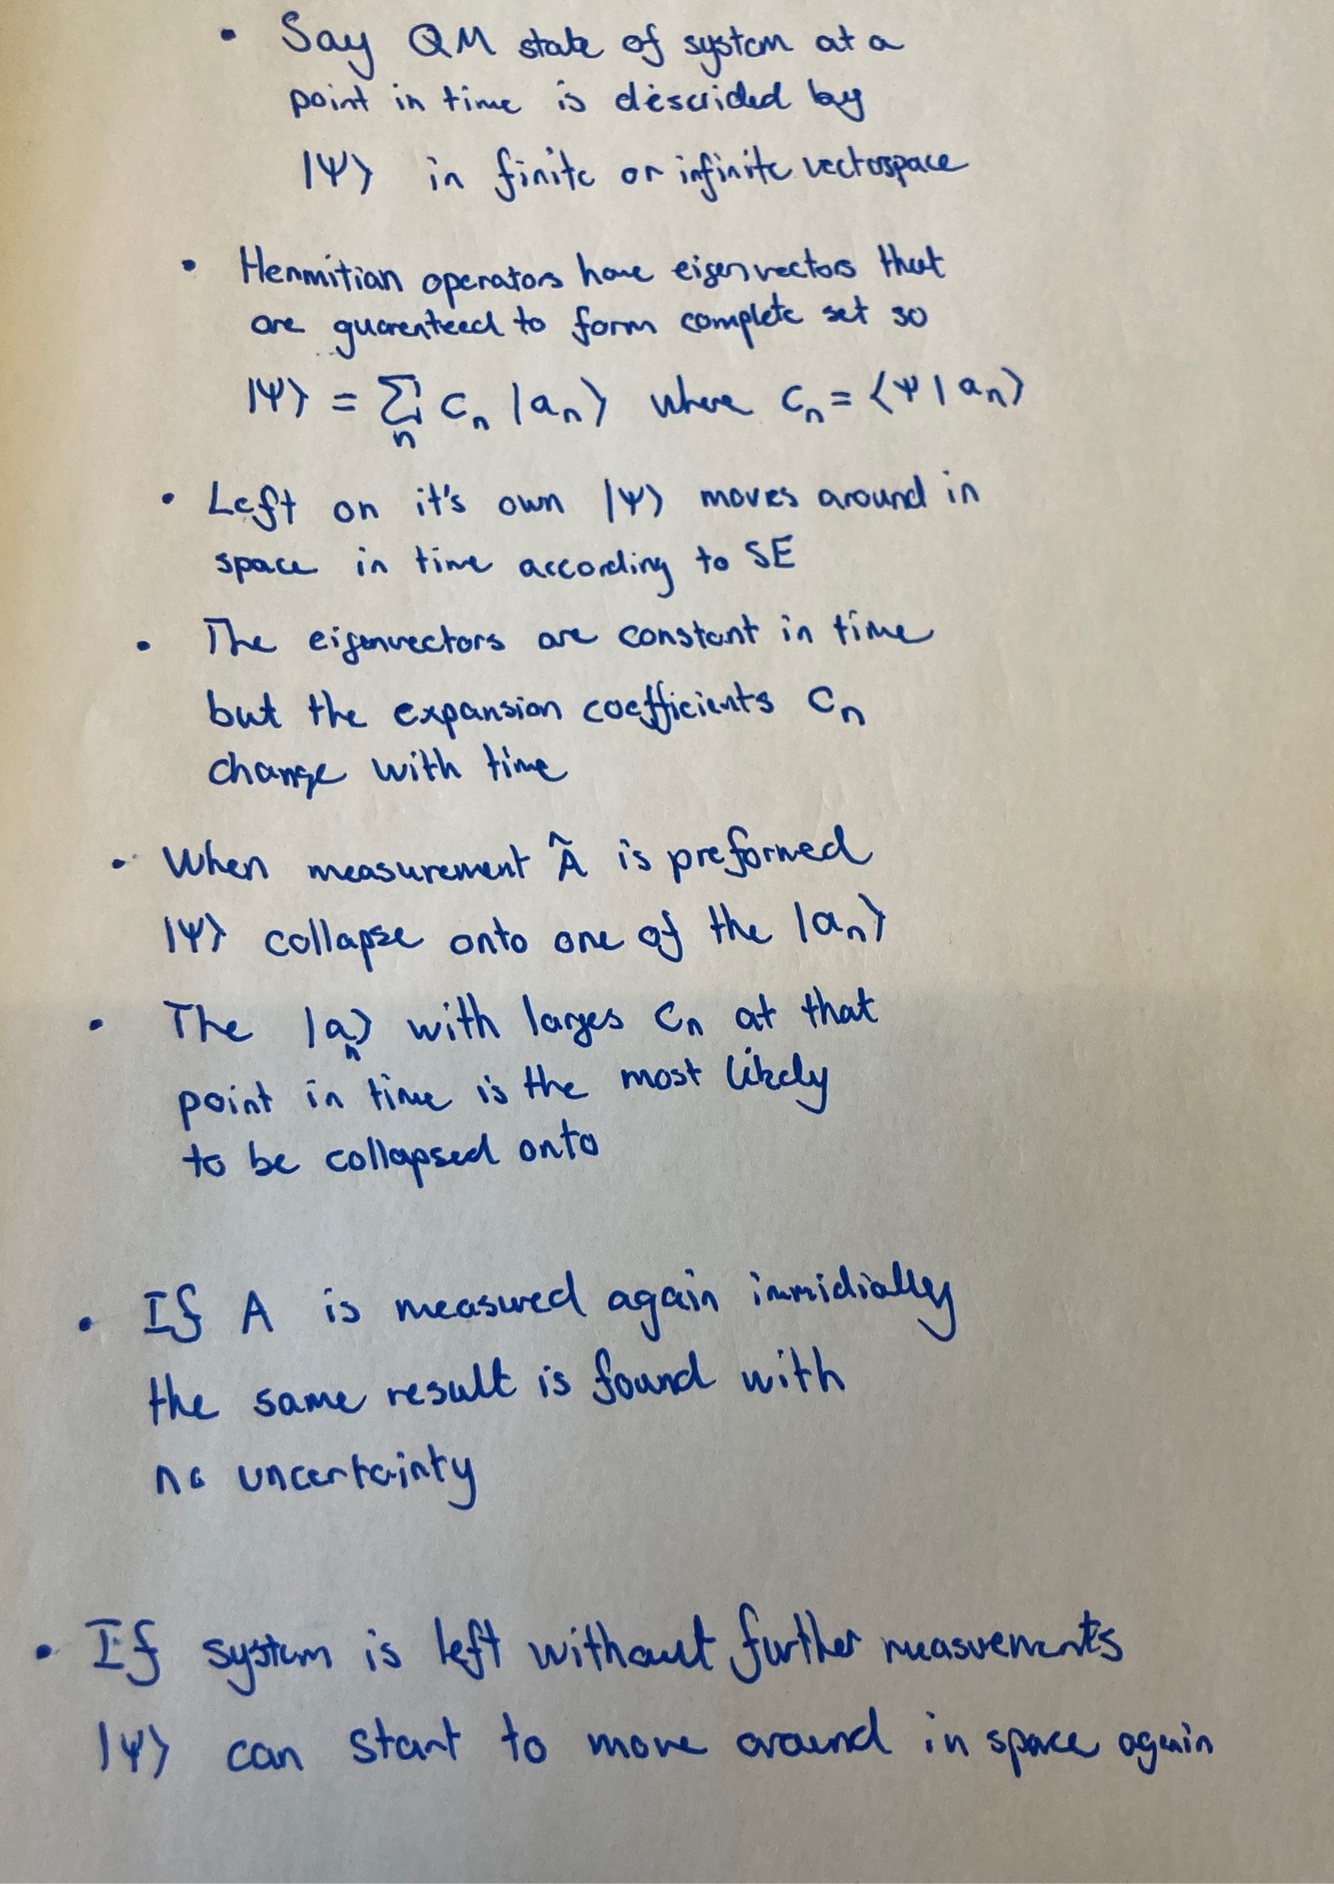 • Say QM state of system at a
point in time is descrided by
|Ψ⟩ in finite or infinite vectorspace
• Hermitian operators have eigenvectors that
are guarenteed to form complete set so
|Ψ⟩ = Σ_n c_n |a_n⟩ where c_n = ⟨Ψ|a_n⟩
• Left on it's own |Ψ⟩ moves around in
space in time according to SE
• The eigenvectors are constant in time
but the expansion coefficients c_n
change with time
• When measurement Â is preformed
|Ψ⟩ collapse onto one of the |a_n⟩
• The |a_n⟩ with larges c_n at that
point in time is the most likely
to be collapsed onto
• If A is measured again immidially
the same result is found with
no uncertainty
• If system is left without further measurements
|Ψ⟩ can start to move around in space again